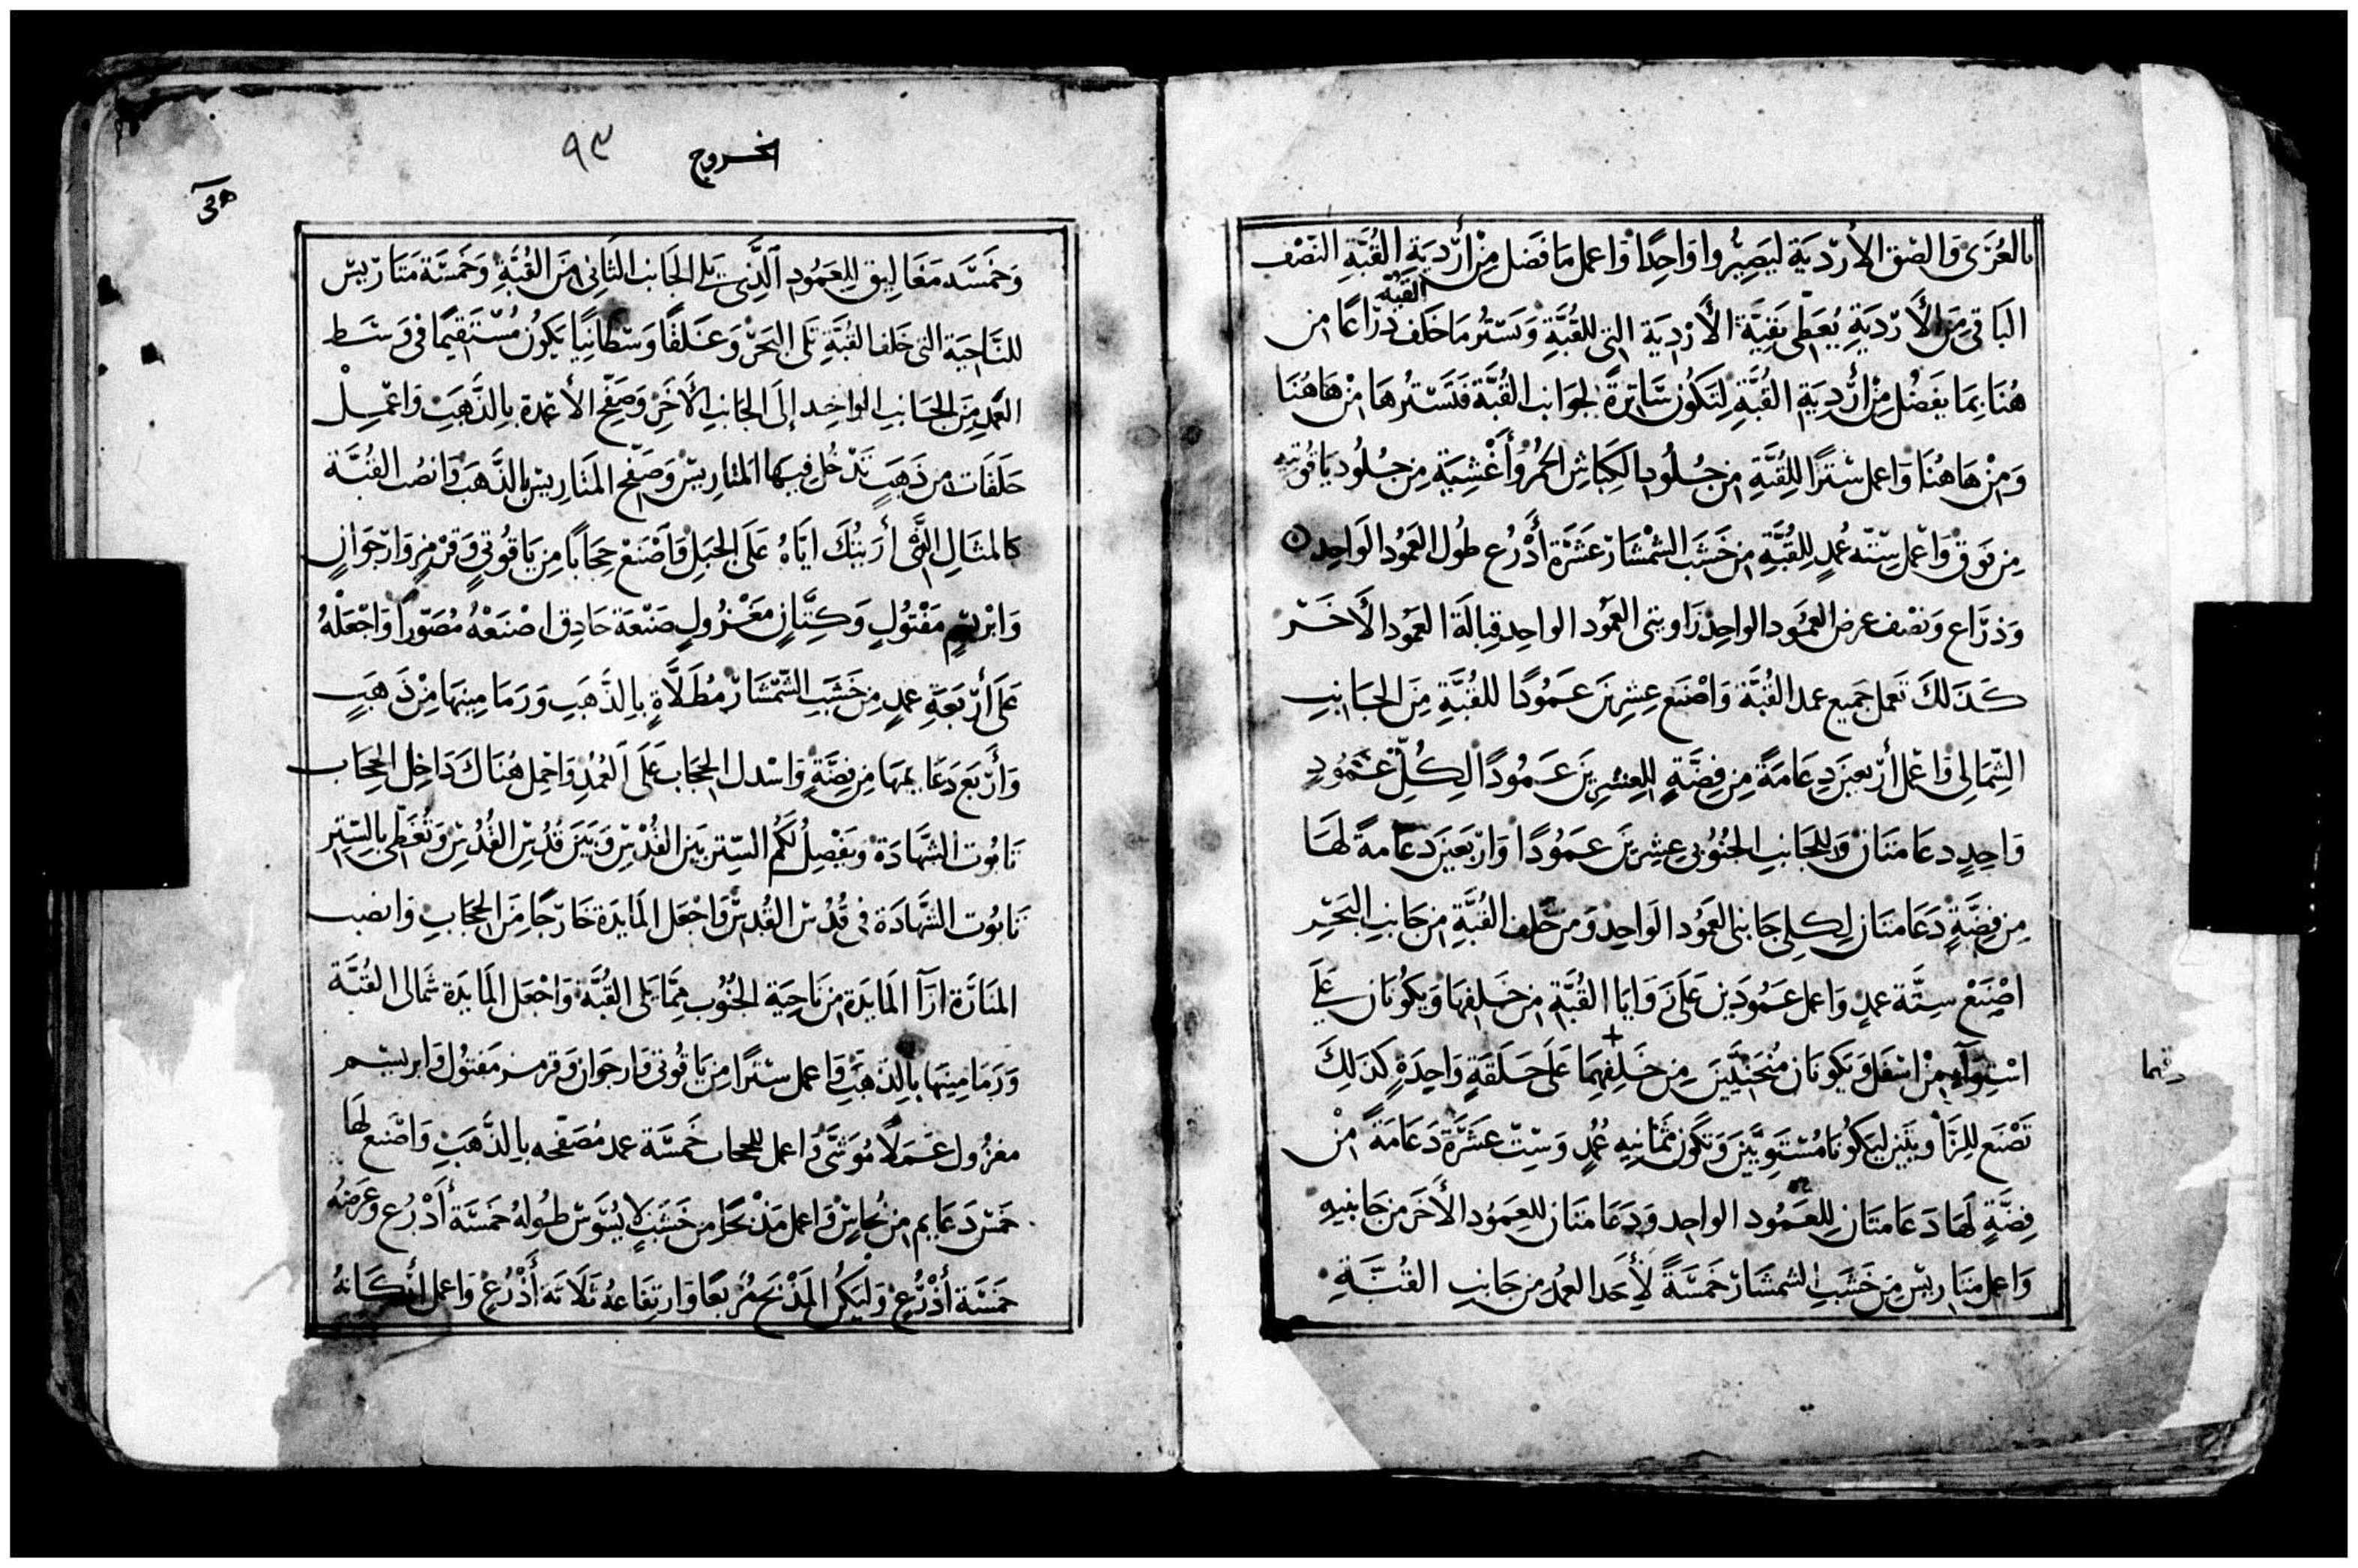 بالعُرَى وَالصق الأرْديَة ليَصِيرُوا وَاحِدًا وَاعمل مَا فَضل مِنْ أرْديَةِ القُبَّةِ النصْف
البَاقي مِنَ الأَرْديَةِ يُعَطى بَقِيَّة الأَرْدِيَة التِي لِلقُبَّةِ وَيَسْتُر مَا خَلف القُبَّة ذِرَاعًا مِن
هُنَا بِمَا يَفضُل مِنْ أرْدِيَةِ القُبَّةِ لِتَكُون سَاتِرَةً لِجَوَانِب القُبَّة فَتَسْتُرهَا مِنْ هَاهُنَا
وَمِنْ هَاهُنَا وَاعمل سْترًا لِلقُبَّةِ مِن جُلُودِ الكِبَاشِ الحُمُر وَأغْشِيَةٍ مِن جُلُود يَاقُوتيه
مِن فَوَق وَاعْمل سِتّه عُمُدٍ لِلقُبَّةِ مِن خَشَب الشمْشَار عَشَرَة أَذْرُع طُول العَمُود الوَاحِد
وَذرَاع وَنصْف عرض العَمُود الواحِد زَاويتى العَمُود الواحِد قِبَالَة العَمُود الأَخَر
كَذَلكَ تَعمل جَميع عمد القُبَّة وَاصْنَع عِشِرِينَ عَمُودًا للقُبَّةِ مِنَ الجَانِبِ
الشِمَالِي وَاعْمل أرْبعِينَ دِعَامَةً مِن فِضَّةٍ لِلعِشرِينَ عَمُودًا لِكُلِّ عَمُودٍ
وَاحِدٍ دعَامَتَان وَللجَانِبِ الجَنُوبي عِشرِينَ عَمُودًا وَارْبَعِينَ دعَامةً لهَا
مِن فِضَّةٍ دَعَامتَان لِكلِي جَانبَي العَمُود الوَاحِد وَمن خَلف القُبَّةِ مِن جَانِبِ البَحَرِ
اصْنَعْ سِتَّة عمدٍ وَاعمل عَمُودَين عَلَى زَوَايَا القُبَّةِ مِن خَلفِهَا وَيكُونَان عَلَى
اسْتِوآءٍ مِنْ اسفَل وَيَكونَان مُنحَنِيَّينَ مِن خَلفِهِمَا عَلَى حَلَقَةٍ وَاحِدَةٍ كَذَلِكَ
تَصْنَع للزَاويَتَينِ ليَكُونَا مُسْتَوِيَّينَ وَتكُون ثمَانِيه عُمُدٍ وَسِتّ عَشَرَة دَعَامَةً مِنْ
فِضَّةٍ لهَا دَعَامتَانِ لِلعَمُود الواحِد وَدَعَامَتَان للعَمُود الأَخَر مِن جَانِبيهِ
وَاعمل متَارِيسْ مِن خَشَبِ الشمشَار خَمسَةً لأَحَد العمُد من جَانِبِ القُبَّةِ
الخروج
٩٣
وَخَمسَه مَغَاليق لِلعَمُودِ الَّذِي يَلي الجَانِب الثَانِي مِنَ القُبَّةِ وَخَمسَة مَتَارِيسْ
للنَاحِيَة التي خَلف القُبَّةِ تَلَى البَحَرْ وَغَلقًا وَسْطانِيًا يَكُون مُسْتَقِيمًا في وَسَط
العُمد مِنَ الجَانبِ الواحِد إلَى الجَانِبِ الأَخَرِ وَصَفِّح الأَعْمدة بِالذَّهَب وَاعْمِلْ
حَلقَات مِن ذَهَبٍ تَدْخل فِيهَا المتَارِيسْ وَصَفِّح المَتَارِيسْ بالذَّهَب وَانصُب القُبَّة
كالمثَالِ الَّذى أرَيتُكَ ايَّاهُ عَلَى الجَبَلِ وَاَصْنَعْ حِجَابًا مِن يَاقُوتيٍ وَقرْمزٍ وَارْجوَانٍ
وَابْريسَمٍ مَفْتُولٍ وَكتَّانٍ مَغْزُولٍ صَنْعَة حَاذِق اصْنَعْهُ مُصَوَّرًا وَاجْعَلْهُ
عَلَى أرْبَعَةِ عمدٍ مِن خَشَبِ الشمْشَار مُطَلَاَّةٍ بِالذَّهَبِ وَرمَامِينهَا مِنْ ذَهَبٍ
وَأرْبَع دَعَايِمهَا مِن فِضَّةٍ وَاسْدل الحِجَاب عَلَى العُمُدِ وَاحْمِل هُنَاكَ دَاخِل الحِجَاب
تَابُوت الشَّهَادَة وَيفْصِلُ لَكُم السِّتر بَين القُدْسْ وَبَيَن قُدْسْ القُدْسْ وَتُغَطِّي بالسِّتر
تَابُوت الشَّهَادَة في قُدْسْ القُدْسْ وَاجْعَل المَايدَة خَارِجًا مِنَ الحِجَابِ وَانصب
المَنَارَة ازَآ المَايدَة مِن نَاحِيَة الجَنُوب مِمَّا يَلي القُبَّة وَاجْعَل المَايدَة شمَالي القُبَّة
وَرمَامِينِهَا بِالذَهَب وَاعمل سترًا مِن يَاقُوتي وَارجوَان وَقرمز مَفتُول وَابريسَم
مغزُول عَمَلًا مُوَشَّى وَاعمل للحجاب خَمسَة عمد مُصَفّحه بِالذَّهَبْ وَاصْنع لهَا
خَمسْ دَعَايم مِن نُحَاسْ وَاعمل مَذْبَحًا مِن خَشَبٍ لا يُسَوّسْ طُولهُ خَمسَة أَذْرُع وَعَرضهُ
خَمسَة أَذْرُعْ وَليَكُن المَذْبَح مُرَبعًا وَارتِفَاعهُ ثَلاَثَة أَذْرُعْ وَاعمل أرْكَانهُ